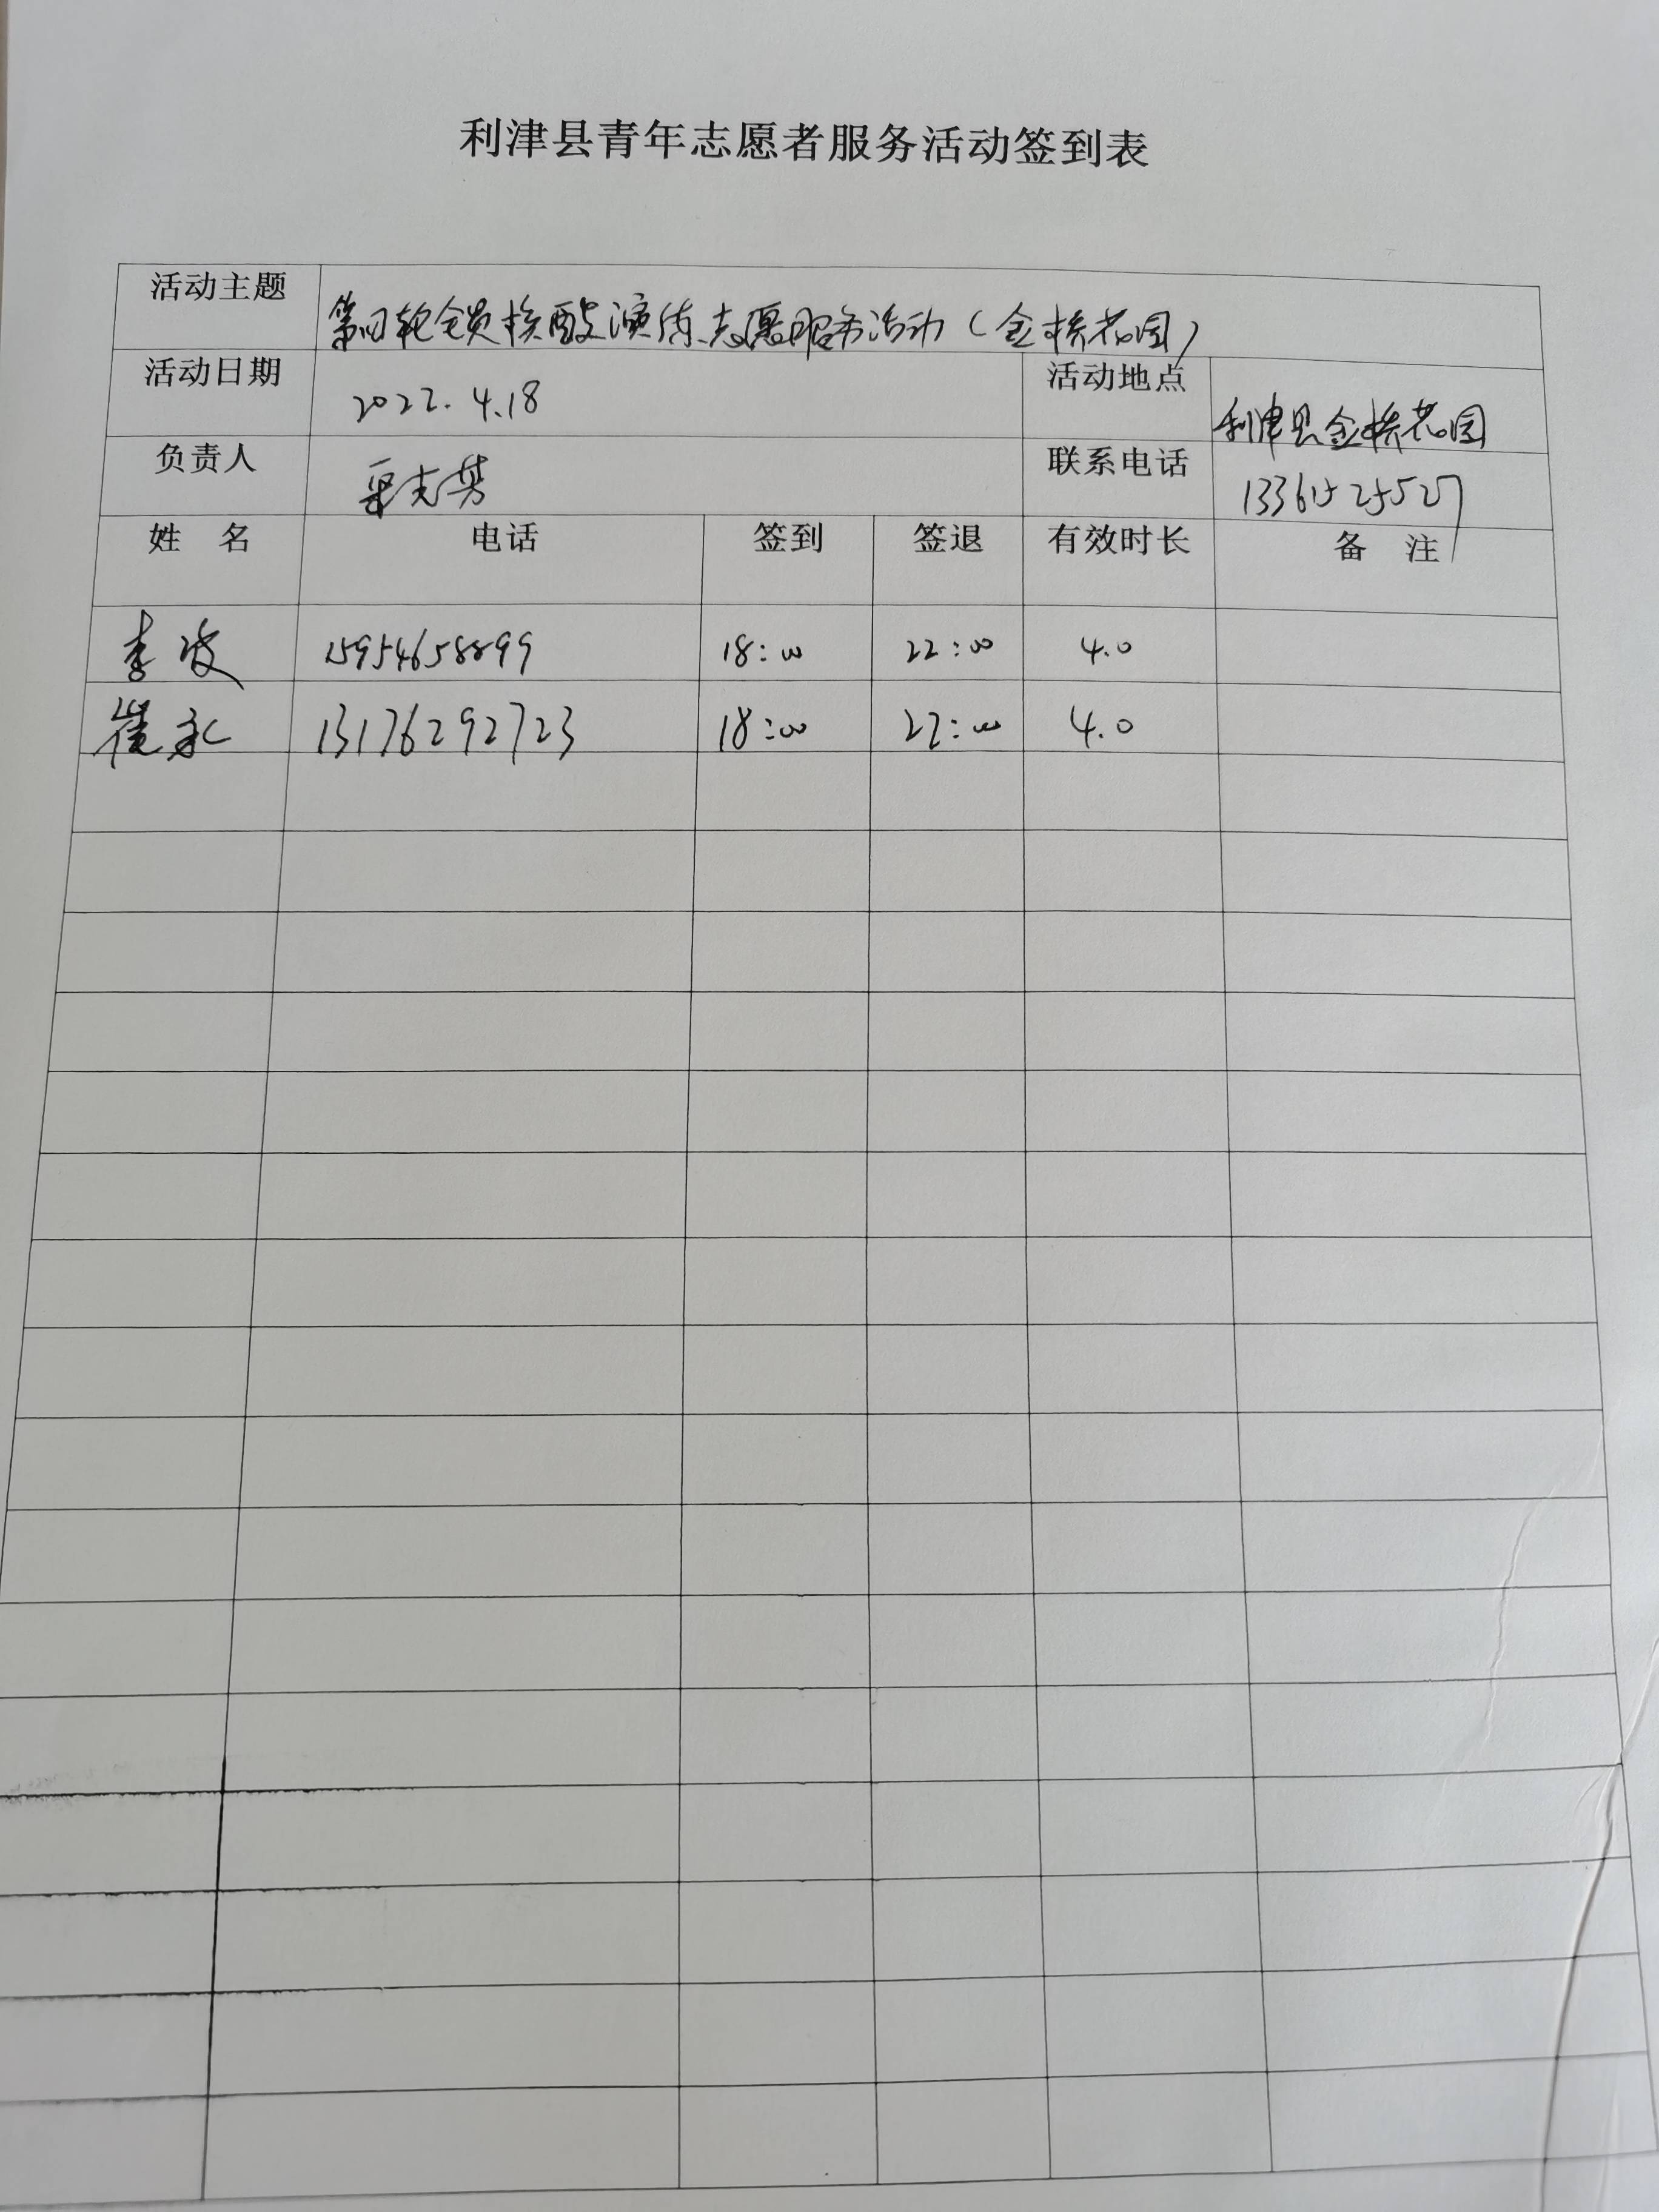 利津县青年志愿者服务活动签到表
活动主题 第四轮全员核酸演练志愿服务活动（金桥花园）
活动日期 2022.4.18 活动地点 利津县金桥花园
负责人 联系电话 13361525527
姓 名 电话 签到 签退 有效时长 备 注
李波 15954658899 18:00 22:00 4.0
崔永 13176292723 18:00 22:00 4.0